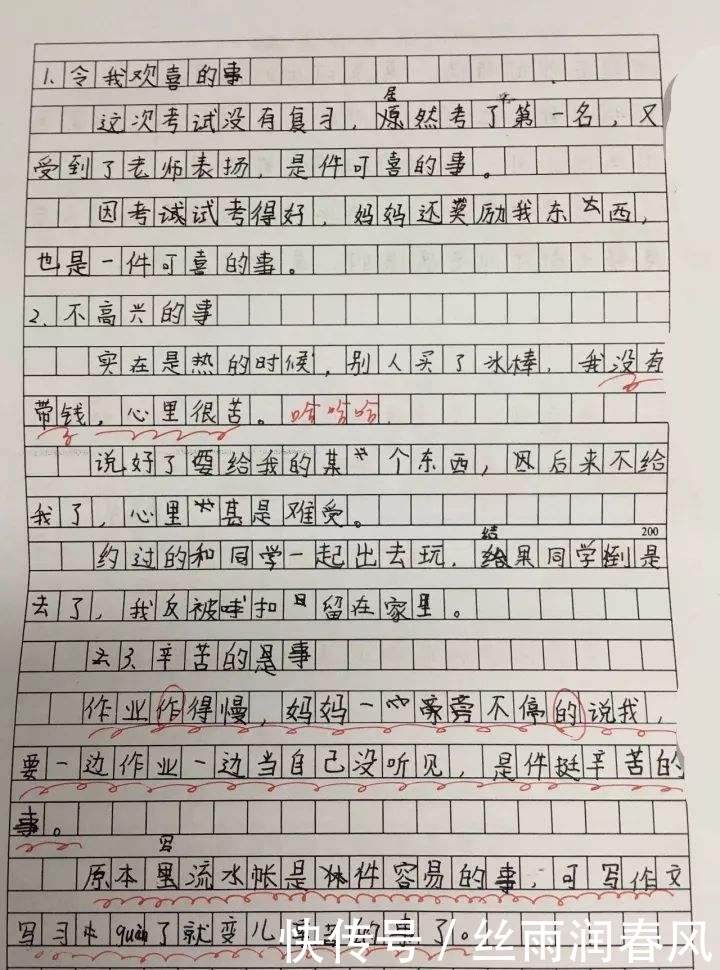 1.令我欢喜的事
这次考试没有复习，居然考了第一名，又
受到了老师表扬，是件可喜的事。
因考试考得好，妈妈还奖励我东西，
也是一件可喜的事。
2.不高兴的事
实在是热的时候，别人买了冰棒，我没有
带钱，心里很苦。哈哈哈
说好了要给我的某个东西，因后来不给
我了，心里甚是难受。
200
约过的和同学一起出去玩，结果同学倒是
去了，我反被扣留在家里。
3、辛苦的事
作业作得慢，妈妈一旁不停的说我，
要一边作业一边当自己没听见，是件挺辛苦的
事。
原本写流水帐是件容易的事，可写作文
写习 quàn了就变儿 的事了。
快传号/丝雨润春风